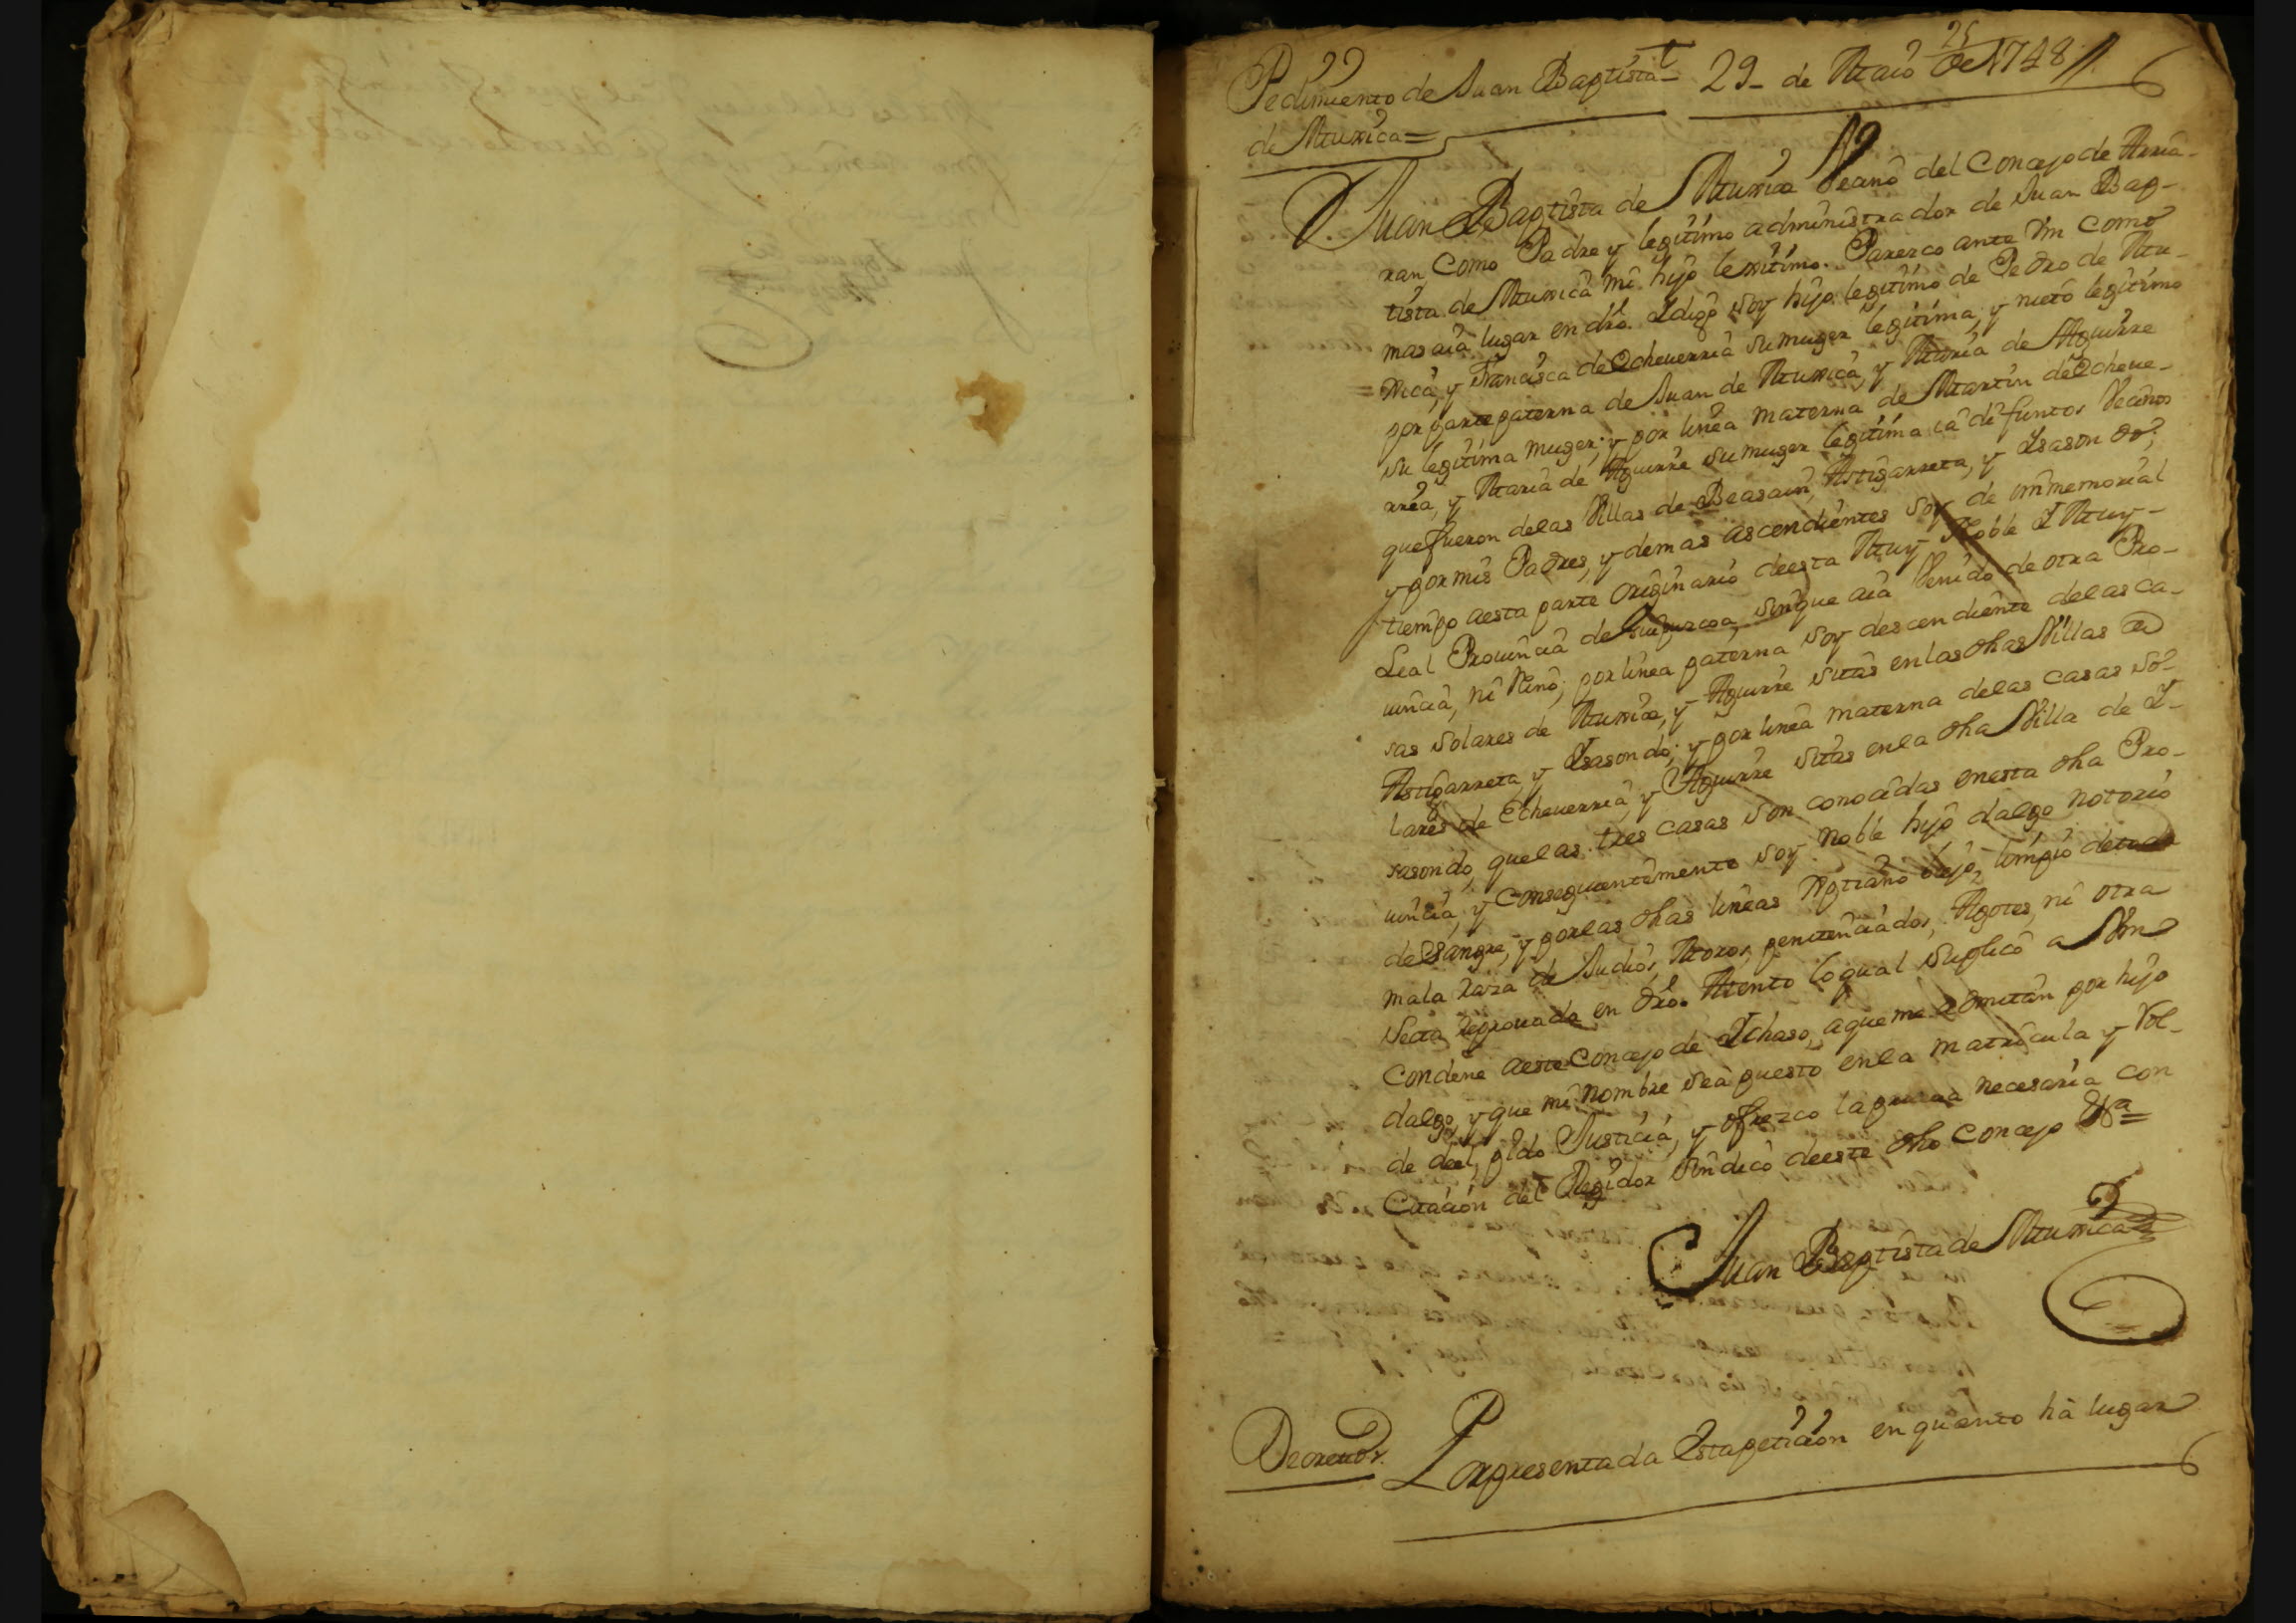 Pedimiento de Juan Baptista
29 de Maio de 1748
25
de Muxica =
Juan Baptista de Muxica Vecino del Concejo de Arria-
ran, Como Padre y legitimo administrador de Juan Bap-
tista de Muxica mi hijo lexitimo. Parezco ante Vm como
mas aia lugar en dro. I digo soy hijo legitimo de Pedro de Mu-
xica, y Francisca de Echeuerria su muger legitima, y nieto legitimo
por parte paterna de Juan de Muxica, y Maria de Aguirre
su legitima muger; y por linea materna de Martin de Echeue-
rria, y Maria de Aguirre su muger legitima ia difuntos Vecinos
que fueron de las Villas de Beasain, Astigarreta, y Isasondo;
y por mis Padres, y demas ascendientes soy de immemorial
tiempo aesta parte originario deesta Muy Noble I Muy
Leal Prouincia de Guipuzcoa, sin que aia Venido de otra Pro-
uincia, ni Reino; por linea paterna soy descendiente delas ca-
sas solares de Muxica, y Aguirre sitas en las dhas Villas de
Astigarreta, y Isasondo; y por linea materna delas casas so-
lares de Echeuerria, y Aguirre sitas enla dha Villa de I-
sasondo, quelas tres casas son conocidas enesta dha Pro-
uincia, y Conseguientemente soy noble hijo dalgo notorio
de Sangre, y porlas dhas lineas Xptiano biejo, limpio de toda
mala raza de Judios, Moros, penitenciados, Agotes, ni otra
secta reprouada en dro. Atento lo qual suplico a Vm
Condene aeste Concejo de Ichaso, aque me admitan por hijo
dalgo, y que mi nombre sea puesto enla matricula y Rol-
de deel, pido Justicia, y ofrezco la prueua necesaria con
Citacion del Regidor Sindico deeste dho Concejo
Juan Baptista de Muxica
Decreto
Por presentada Esta peticion en quanto ha lugar